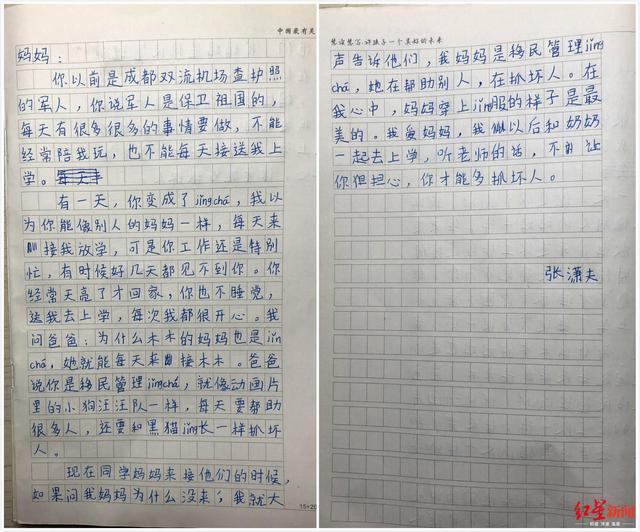 中国最有灵
妈妈：
你以前是成都双流机场查护照
的军人，你说军人是保卫祖国的，
每天有很多很多的事情要做，不能
经常陪我玩，也不能每天接送我上
学。
有一天，你变成了jǐngchá，我以
为你能像别人的妈妈一样，每天来
接我放学，可是你工作还是特别
忙，有时候好几天都见不到你。你
经常天亮了才回家，你也不睡觉，
送我去上学，每次我都很开心。我
问爸爸：为什么木木的妈妈也是jǐn
chá，她就能每天来接木木。爸爸
说你是移民管理jǐngchá，就像动画片
里的小狗汪汪队一样，每天要帮助
很多人，还要和黑猫jǐng长一样抓坏
人。
现在同学妈妈来接他们的时候，
如果问我妈妈为什么没来，我就大
15×20
慧读慧写，许孩子一个美好的未来
声告诉他们，我妈妈是移民管理jǐng
chá，她在帮助别人，在抓坏人。在
我心中，妈妈穿上jǐng服的样子是最
美的。我爱妈妈，我以后和奶奶
一起去上学，听老师的话，不让
你担心，你才能多抓坏人。
张潇夫
红星新闻